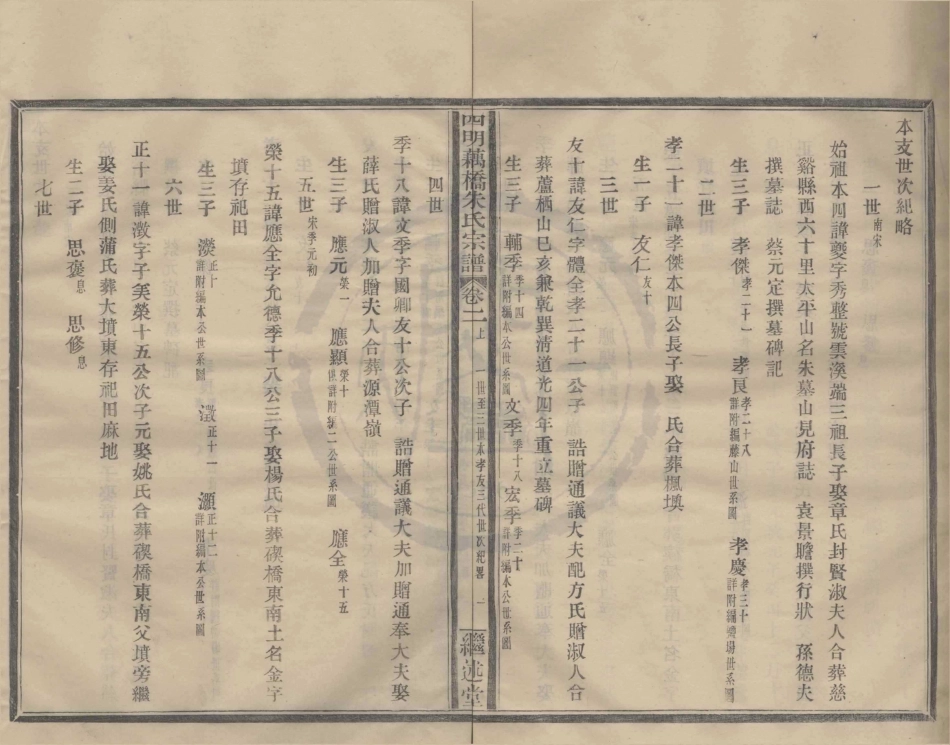 本支世次紀略
一世 南宋
始祖本四諱夔字秀整號雲溪端三祖長子娶章氏封賢淑夫人合葬慈
谿縣西六十里太平山名朱墓山見府誌 袁景瞻撰行狀 孫德夫
撰墓誌 蔡元定撰墓碑記
生三子 孝傑 孝二十一 孝良 孝二十八 詳附編藤山世系圖 孝慶 孝三十
二世
孝二十一諱孝傑本四公長子娶 氏合葬楓墺
生一子 友仁 友十
三世
友十諱友仁字體全孝二十一公子 誥贈通議大夫配方氏贈淑人合
葬蘆栖山巳亥兼乾巽清道光四年重立墓碑
生三子 輔季 季十四 詳附編本公世系圖 文季 季十八 宏季 季二十 詳附編本公世系圖
四明藕橋朱氏宗譜 卷二 上 一世至三世本孝友三代世次紀畧 一 繼述堂
四世
季十八諱文季字國卿友十公次子 誥贈通議大夫加贈通奉大夫娶
薛氏贈淑人加贈夫人合葬源潭嶺
生三子 應元 榮一 應顯 榮十 俱詳附編二公世系圖 應全 榮十五
五世 宋季元初
榮十五諱應全字允德季十八公三子娶楊氏合葬碶橋東南土名金字
墳存祀田
生三子 正十 詳附編本公世系圖 澂 正十一 灝 正十二 詳附編本公世系圖
六世
正十一諱澂字子美榮十五公次子元娶姚氏合葬碶橋東南父墳旁繼
娶姜氏側蒲氏葬大墳東存祀田麻地
生二子 思褒 思 思修 思
七世